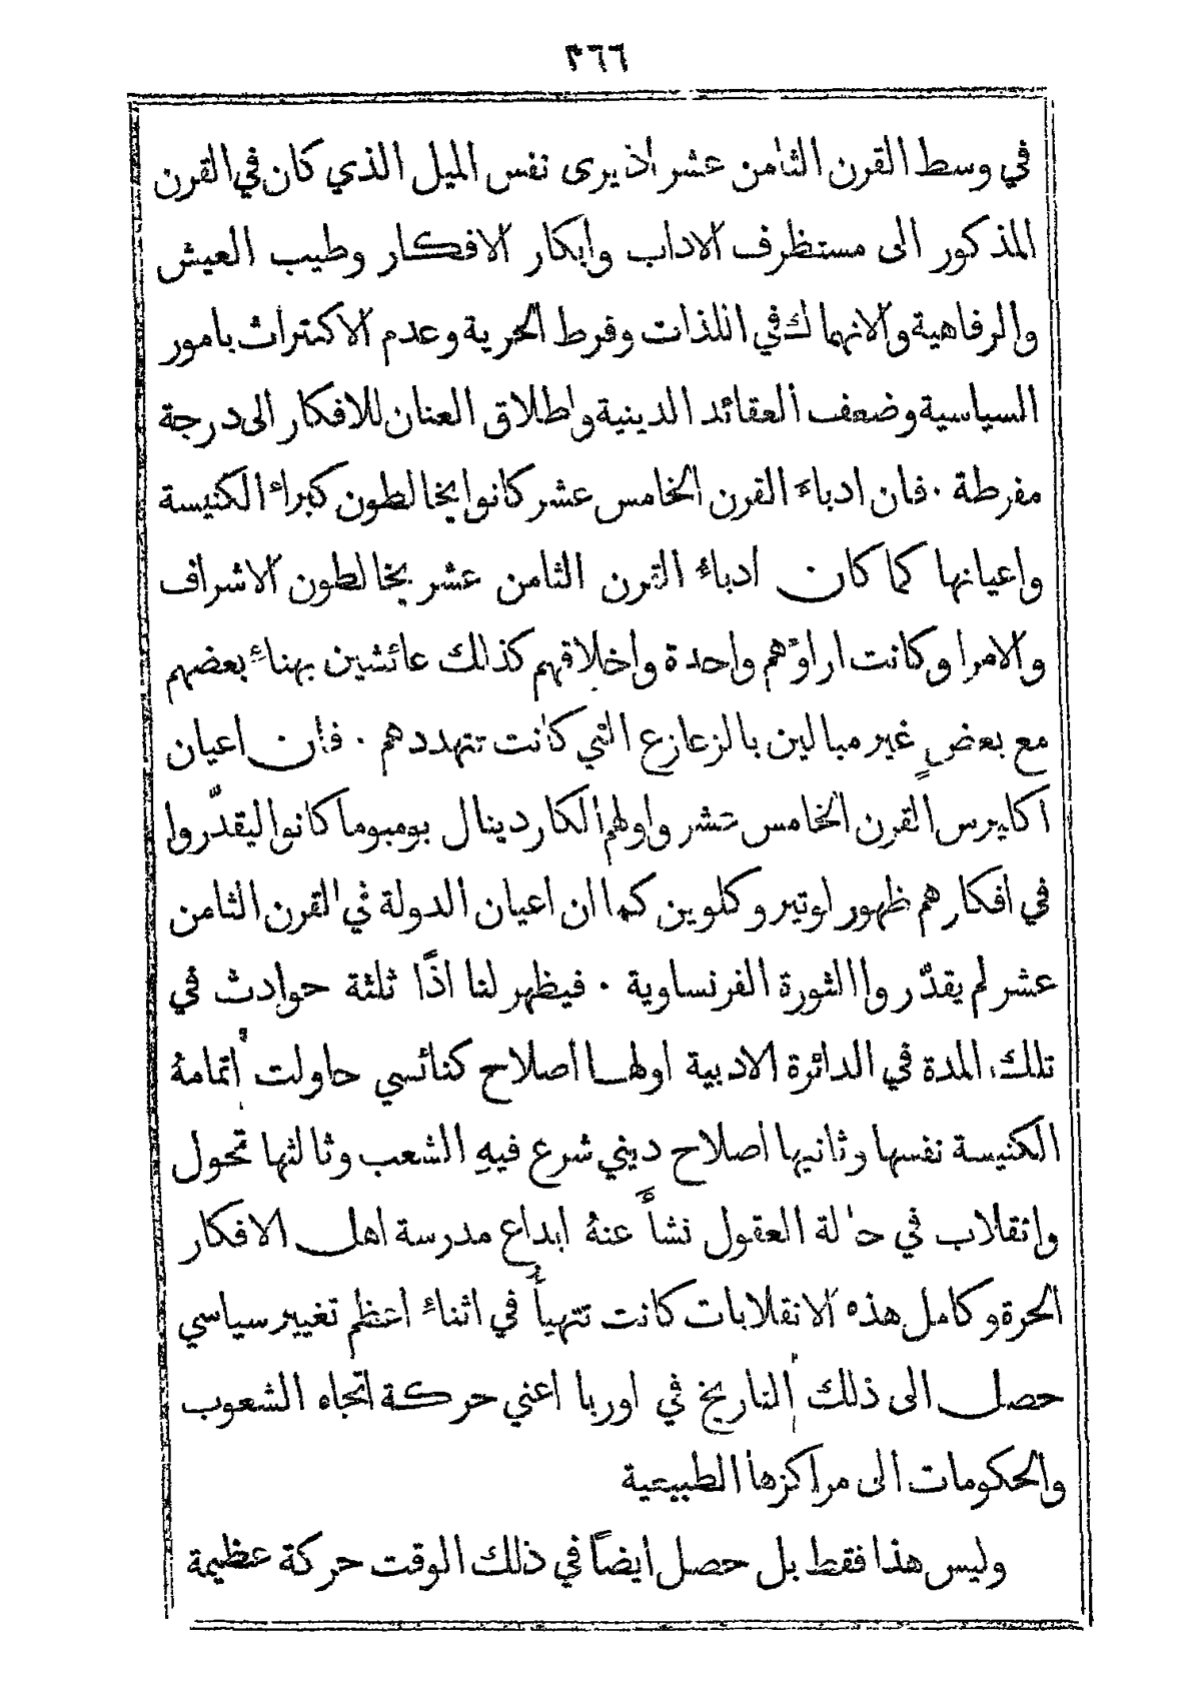 ٣٦٦
في وسط القرن الثامن عشر اذ يرى نفس الميل الذي كان في القرن
المذكور الى مستظرف الاداب وابكار الافكار وطيب العيش
والرفاهية والانهماك في اللذات وفرط الحرية وعدم الاكتراث بامور
السياسية وضعف العقائد الدينية واطلاق العنان للافكار الى درجة
مفرطة . فان ادباء القرن الخامس عشر كانوا يخالطون كبراء الكنيسة
واعيانها كما كان ادباء القرن الثامن عشر يخالطون الاشراف
والامرا وكانت اراؤهم واحدة واخلاقهم كذلك عائشين بهناء بعضهم
مع بعضٍ غير مبالين بالزعازع التي كانت تتهددهم . فان اعيان
اكليرس القرن الخامس عشر واولهم الكاردينال بومبوما كانوا ليقدّروا
في افكارهم ظهور لوتير وكلوين كما ان اعيان الدولة في القرن الثامن
عشر لم يقدّروا الثورة الفرنساوية . فيظهر لنا اذًا ثلثة حوادث في
تلك المدة في الدائرة الادبية اولها اصلاح كنائسي حاولت اتمامهُ
الكنيسة نفسها وثانيها اصلاح ديني شرع فيهِ الشعب وثالثها تحول
وانقلاب في حالة العقول نشأ عنهُ ابداع مدرسة اهل الافكار
الحرة وكامل هذه الانقلابات كانت تتهيأ في اثناء اعظم تغيير سياسي
حصل الى ذلك التاريخ في اوربا اعني حركة اتجاه الشعوب
والحكومات الى مراكزها الطبيعية
وليس هذا فقط بل حصل ايضاً في ذلك الوقت حركة عظيمة